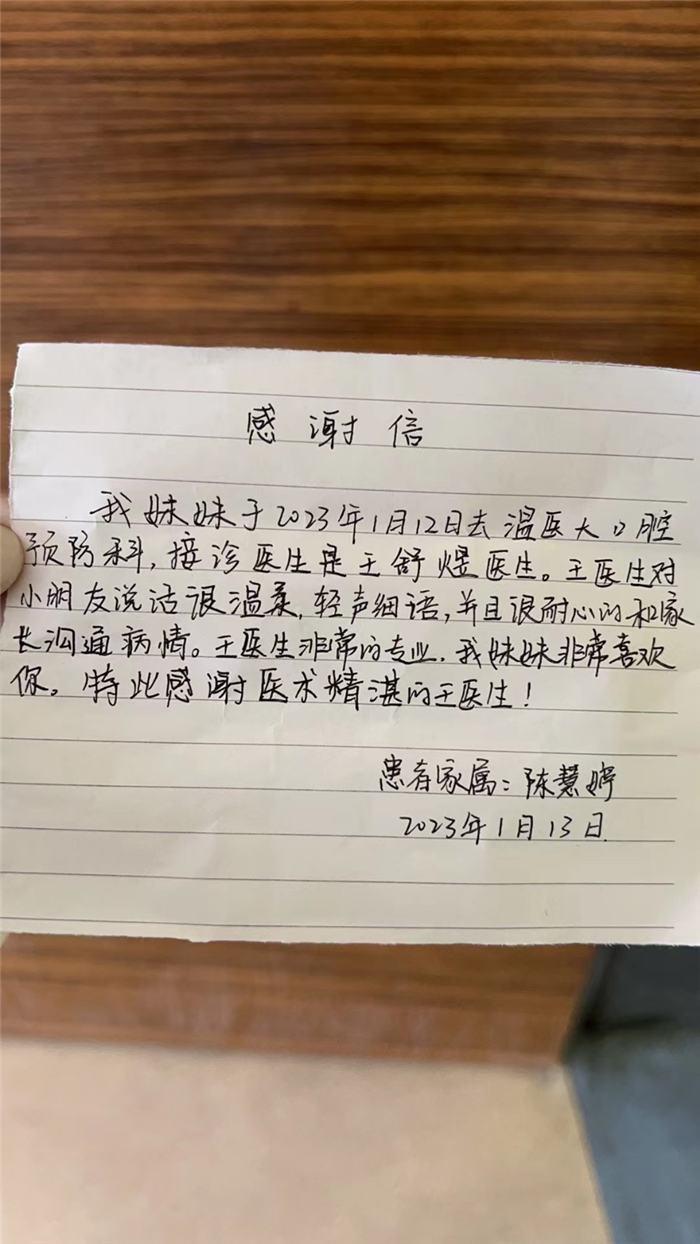 感谢信
我妹妹于2023年1月12日去温医大口腔
预防科,接诊医生是王舒煜医生。王医生对
小朋友说话很温柔,轻声细语,并且很耐心的和家
长沟通病情。王医生非常的专业,我妹妹非常喜欢
你。特此感谢医术精湛的王医生!
患者家属:陈慧婷
2023年1月13日